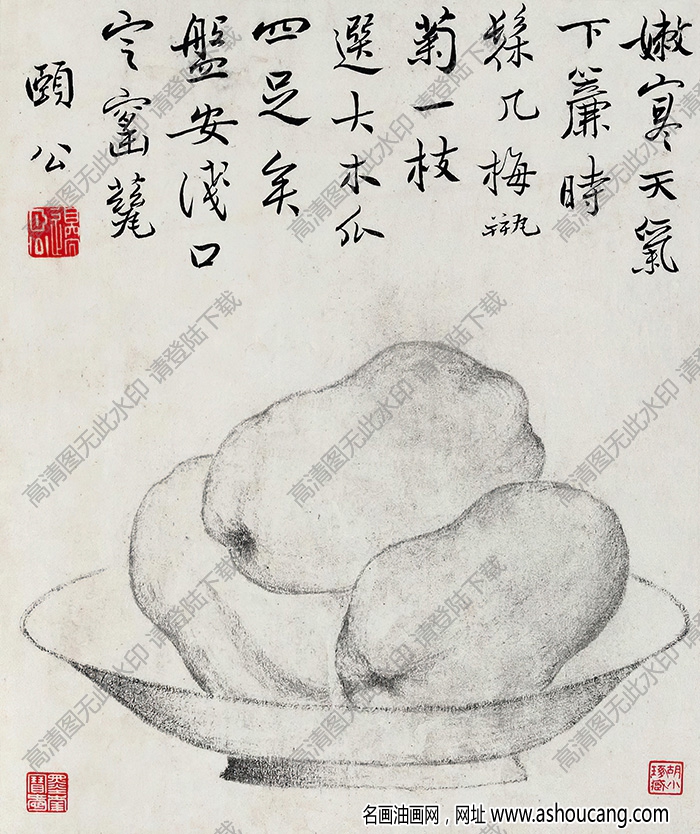 嫩寒天氣
下簾時
髹几梅瓶
菊一枝
選大木瓜
四足矣
盤安淺口
定窰甆
頤公
胡小琢藏
高清图无此水印 请登陆下载
名画油画网，网址 www.ashoucang.com